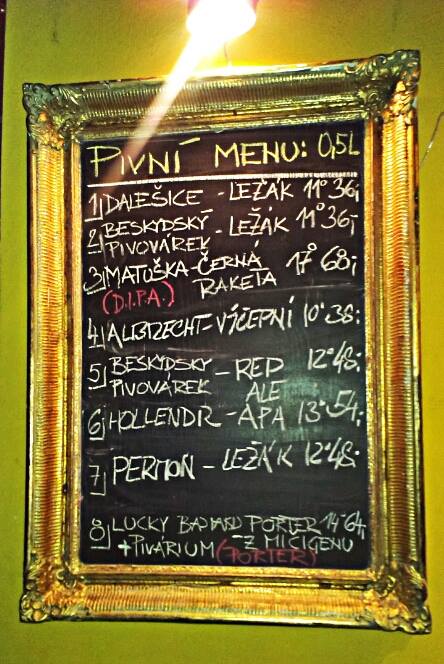 PIVNÍ MENU: 0,5L
1) DALEŠICE - LEŽÁK 11° 36;
2) BESKYDSKÝ - LEŽÁK 11° 36;
PIVOVÁREK
3) MATUŠKA - ČERNÁ 17° 68;
(D.I.P.A.) RAKETA
4) ALBRECHT - VÝČEPNÍ 10° 38;
5) BESKYDSKÝ - RED 12° 48;
PIVOVÁREK ALE
6) HOLLENDR - APA 13° 54;
7) PERMON - LEŽÁK 12° 48;
8) LUCKY BASTARD PORTER 14° 64;
+ PIVÁRIUM (PORTER) - Z MICIGENU